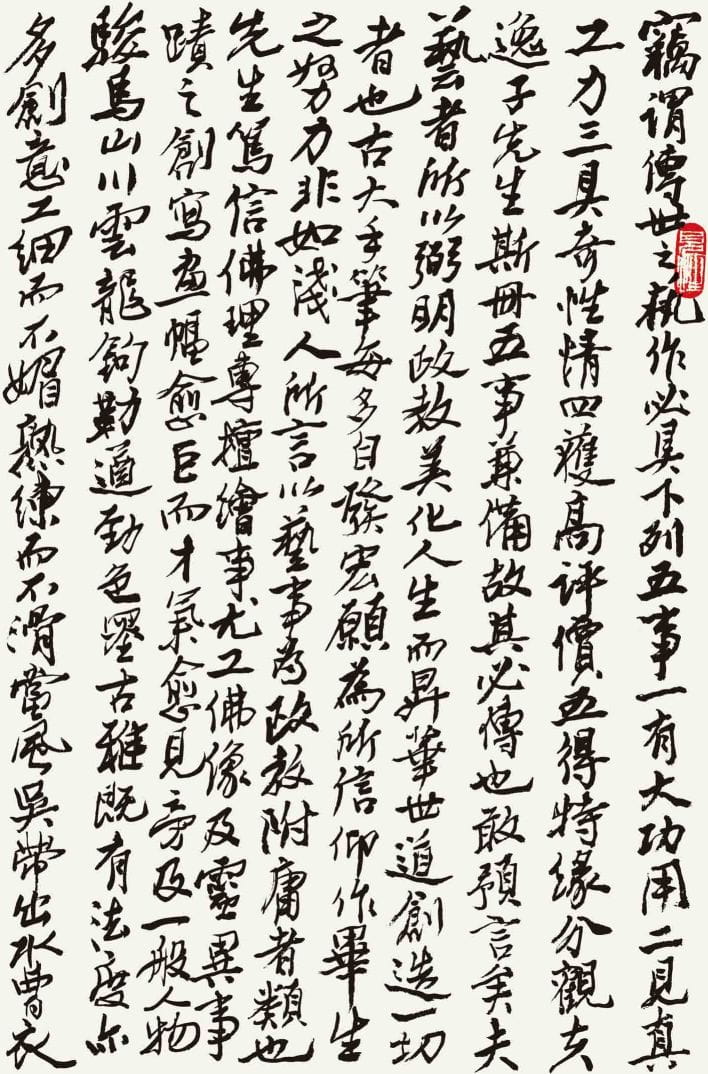 竊謂傳世之執作必具下列五事一有大功用二見真
工力三具奇性情四獲高評價五得特緣分觀夫
逸子先生斯冊五事兼備故其必傳也敢預言矣夫
藝者所以弼明政教美化人生而昇華世道創造一切
者也古大手筆每多自發宏願為所信仰作畢生
之努力非如淺人所言以藝事為政教附庸者類也
先生篤信佛理專擅繪事尤工佛像及靈異事
蹟之創寫畫幅愈巨而才氣愈見旁及一般人物
駿馬山川雲龍鈎勒遒勁色墨古雅既有法度亦
多創意工細而不媚熟練而不滑當風吳帶出水曹衣